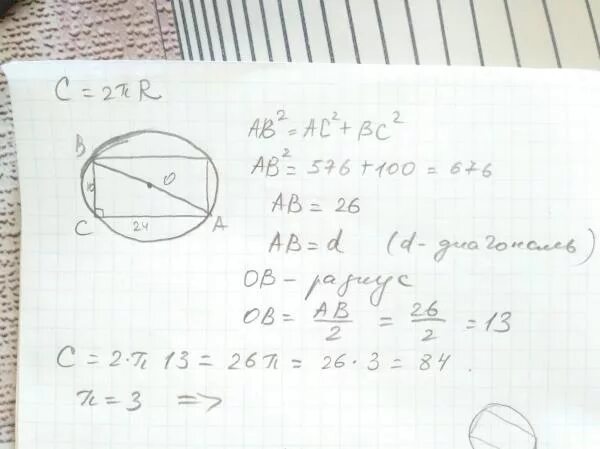 C = 2πR
AB² = AC² + BC²
AB² = 576 + 100 = 676
AB = 26
AB = d (d - диагональ)
OB - радиус
OB = AB/2 = 26/2 = 13
C = 2·π 13 = 26π = 26·3 = 84.
π = 3 =>
B
O
10
C
24
A